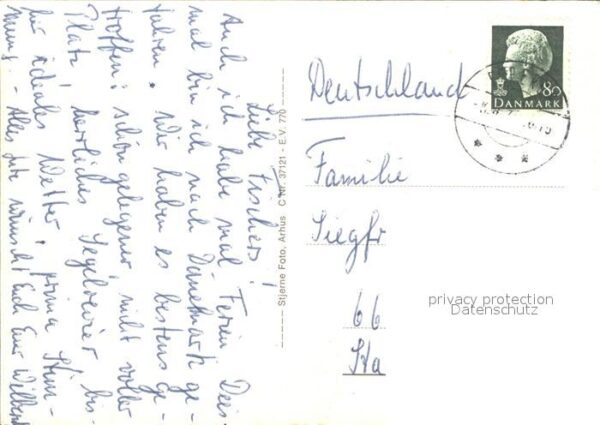 Liebe Fischers!
Auch ich habe mal Ferien. Dies-
mal bin ich nach Dänemark ge-
fahren. Wir haben es bestens ge-
troffen: schön gelegener, nicht voller
Platz, herrliches Segelrevier, bis-
her ideales Wetter, prima Stim-
mung. - Alles Gute wünscht Euch Euer Wilbert
Stjerne Foto, Århus C Nr. 37121 - E.V. 772
80
DANMARK
Deutschland
Familie
Siegfr
66
Sta
privacy protection
Datenschutz